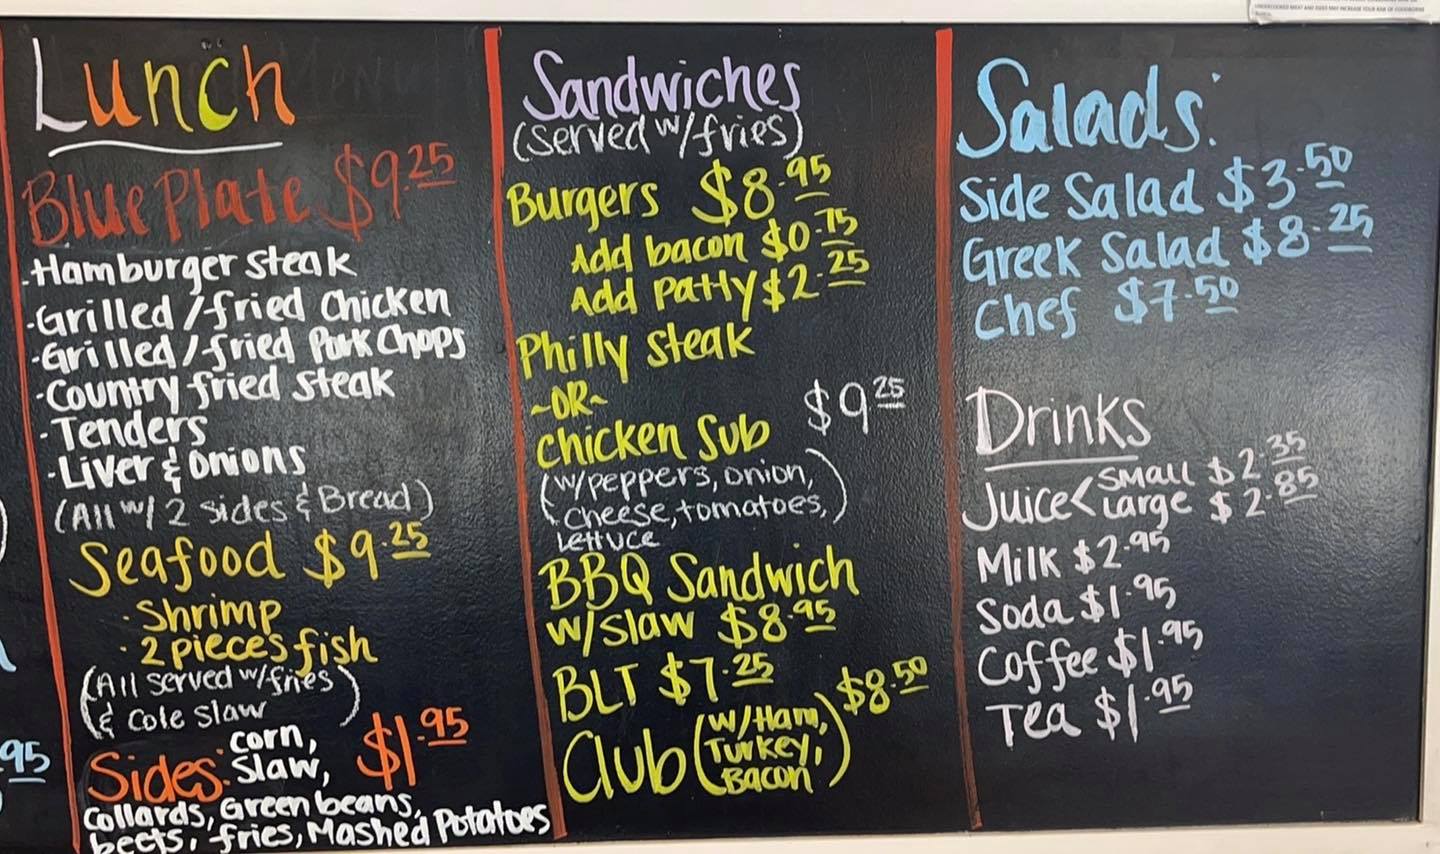 UNDERCOOKED MEAT AND EGGS MAY INCREASE YOUR RISK OF FOODBORNE
Lunch
Blue Plate $9.25
·Hamburger steak
·Grilled/fried Chicken
·Grilled/fried Pork Chops
·Country fried steak
·Tenders
·Liver & Onions
(All w/ 2 sides & Bread)
Seafood $9.25
·Shrimp
·2 pieces fish
(All served w/fries
& Cole Slaw)
Sides: corn, $1.95
Slaw,
Collards, Green beans,
beets, fries, Mashed Potatoes
.95
Sandwiches
(Served w/fries)
Burgers $8.95
Add bacon $0.75
Add Patty $2.25
Philly Steak
~OR~
Chicken Sub $9.25
(w/peppers, onion,
cheese, tomatoes,
lettuce)
BBQ Sandwich
w/slaw $8.95
BLT $7.25
Club (w/Ham, $8.50
Turkey,
Bacon)
Salads:
Side Salad $3.50
Greek Salad $8.25
Chef $7.50
Drinks
Juice< Small $2.35
Large $2.85
Milk $2.95
Soda $1.95
Coffee $1.95
Tea $1.95